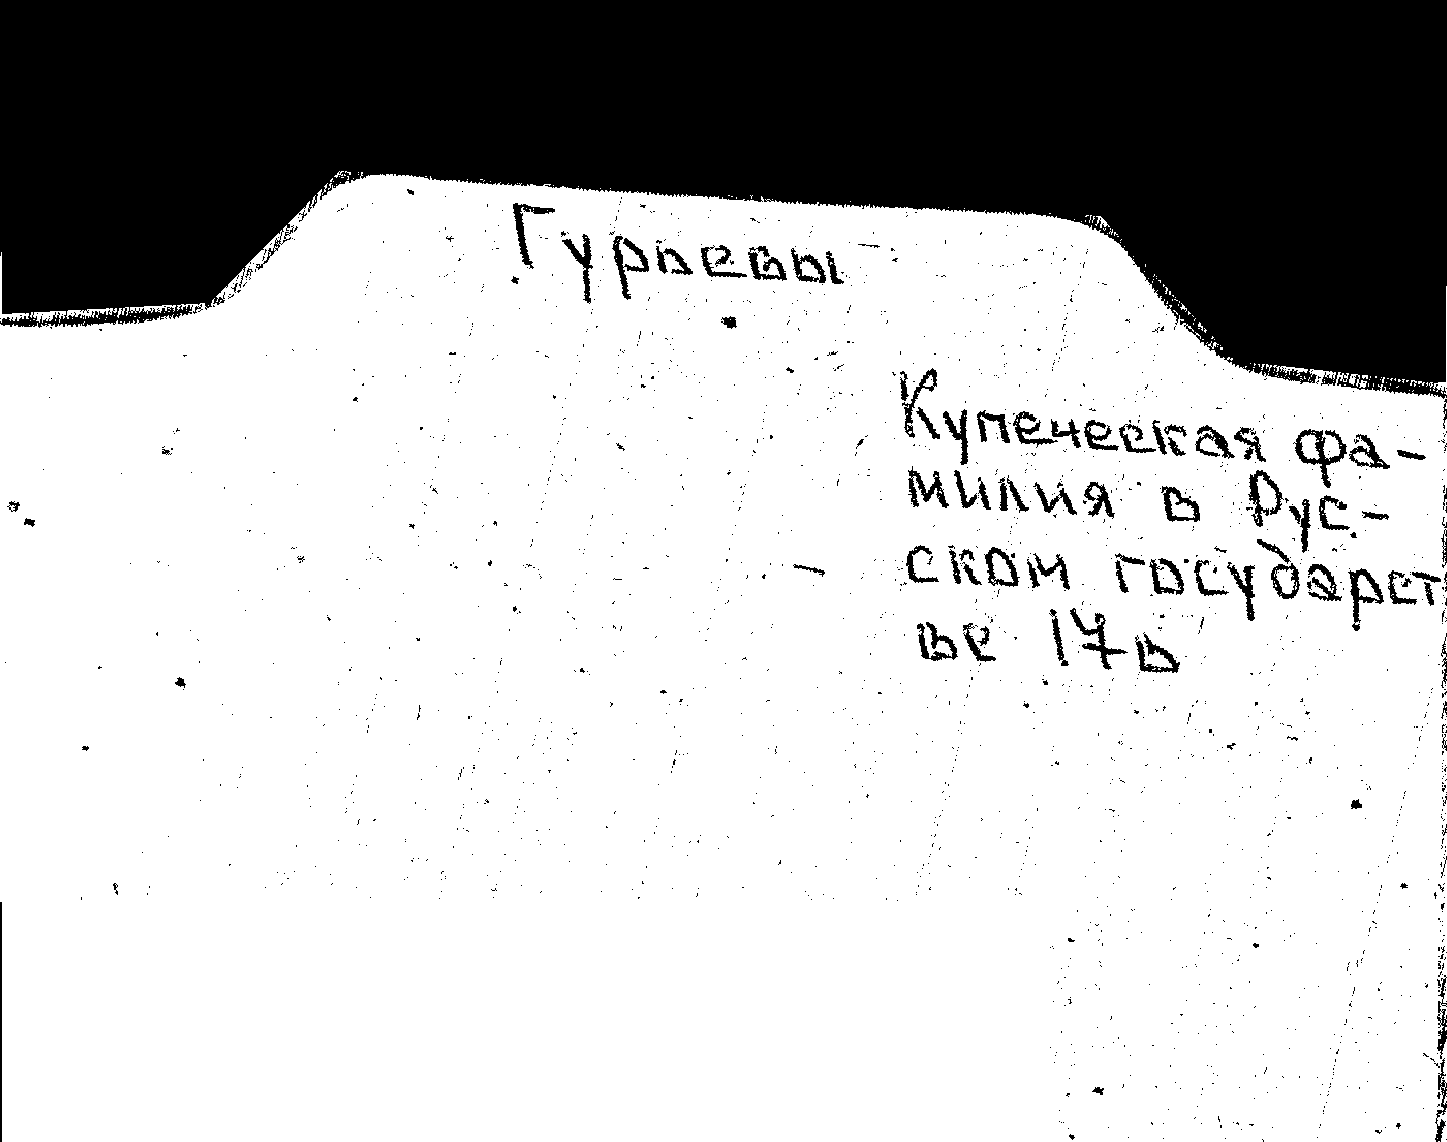 Гурьевы
Купеческая фа-
милия в Рус-
ском государст
ве 17в